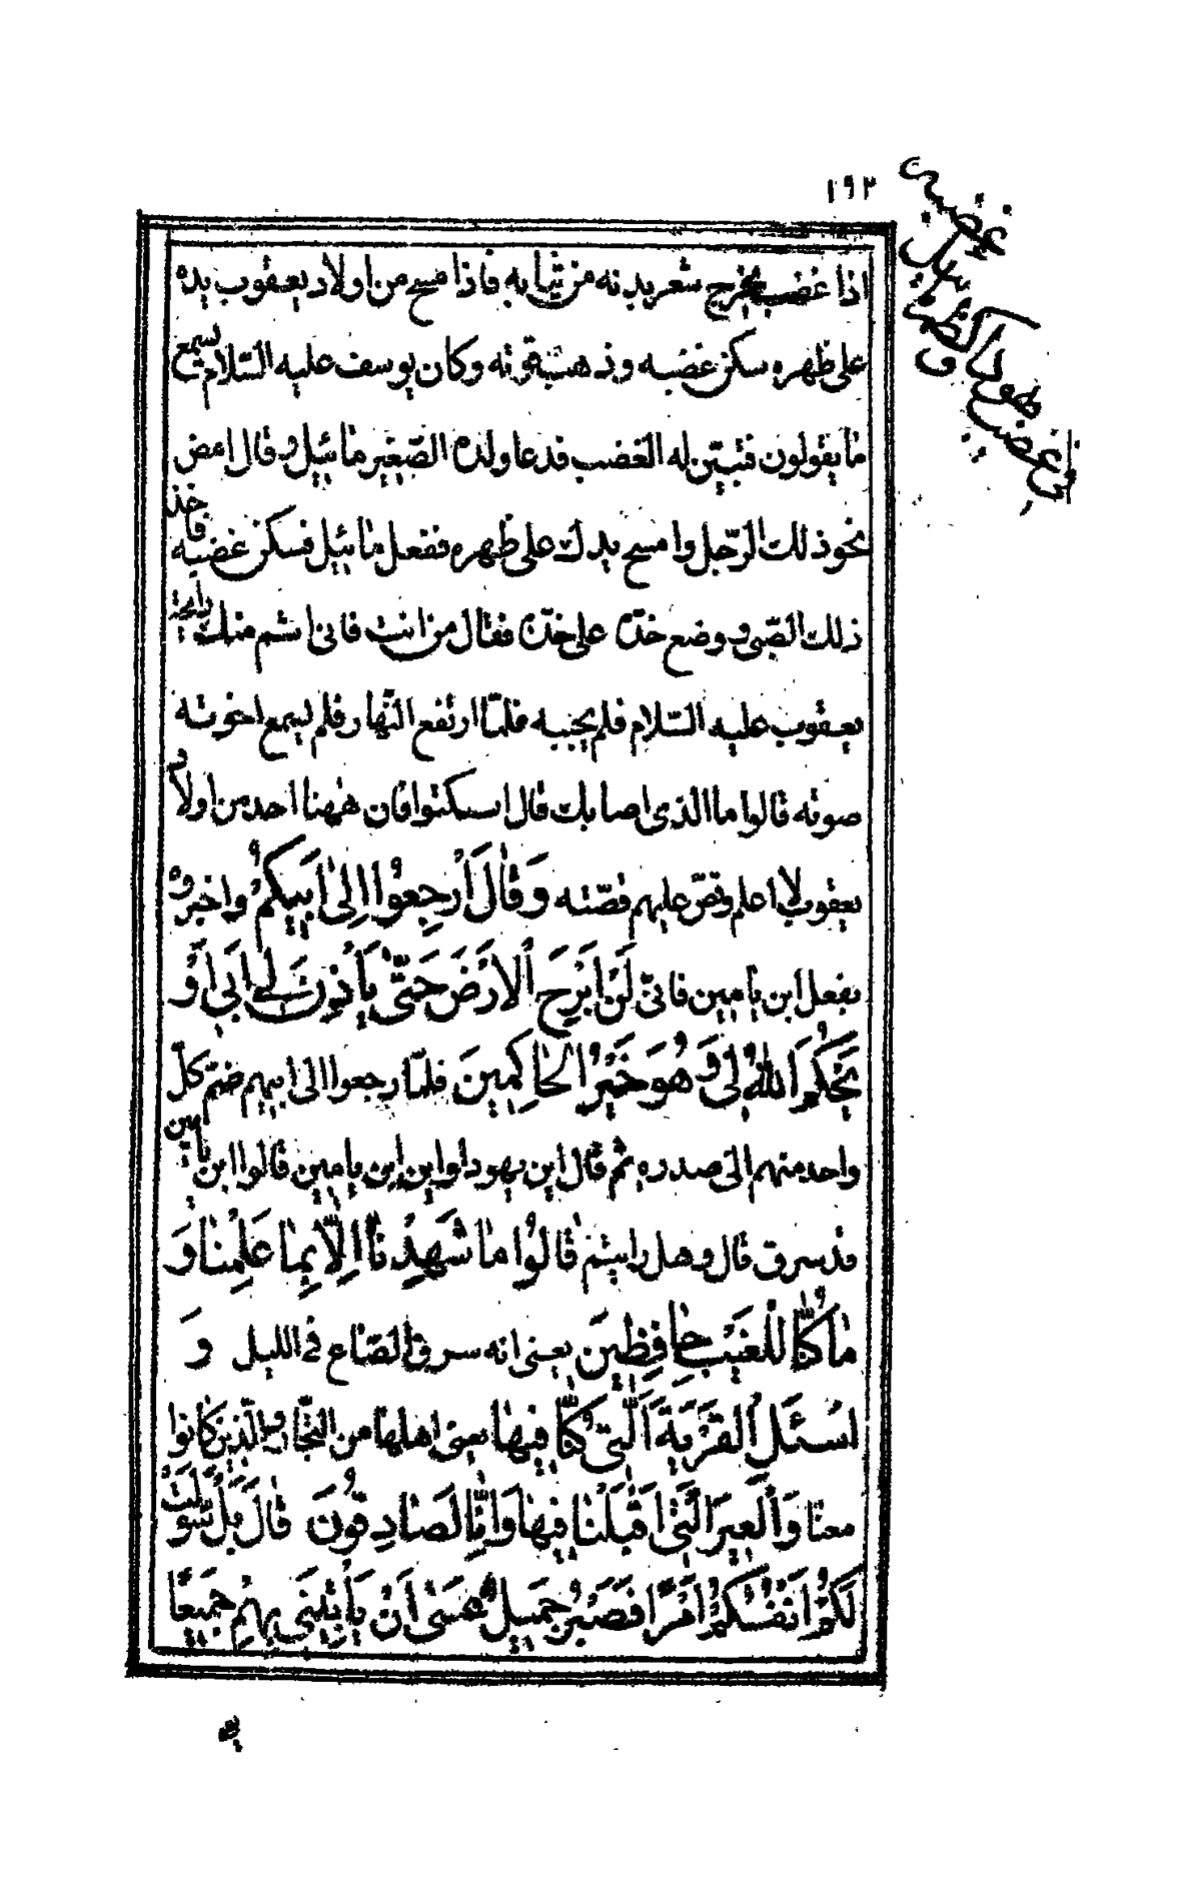 ١٩٢
اذا غضب يخرج شعر بدنه من ثيابه فاذا مسح من اولاد يعقوب يده
على ظهره سكن غضبه وذهبت قوته وكان يوسف عليه السّلام يسمع
ما يقولون فتبيّن له الغضب فدعا ولده الصّغير مائيل وقال امض
نحو ذلك الرّجل وامسح يدك على ظهره ففعل مائيل فسكن غضبه فاخذ
ذلك الصّبى ووضع خدّه على خدّه فقال من انت فانى اشم منك رايحة
يعقوب عليه السّلام فلم يجبه فلمّا ارتفع النّهار فلم يسمع اخوته
صوته قالوا ما الذى اصابك قال اسكتوا فان ههنا احد من اولاد
يعقوب لا اعلم وقصّ عليهم قصّته وَقَالَ ارْجِعُوا اِلىٰ اَبِيكُمْ واخبروه
بفعل ابن يامين فانّى لَنْ اَبْرَحَ الْاَرْضَ حَتّٰى يَأْذَنَ لِى اَبِى اَوْ
يَحْكُمَ اللّٰهُ لِى وَهُوَ خَيْرُ الْحَاكِمِينَ فلمّا رجعوا الى ابيهم ضمّ كلّ
واحد منهم الى صدره ثم قال اين يهودا واين ابن يامين قالوا ابن يامين
قد سرق قال وهل رايتم قَالُوا مَا شَهِدْنَا اِلّا بِمَا عَلِمْنَا وَ
مَا كُنَّا لِلْغَيْبِ حَافِظِينَ يعنى انه سرق الصّاع فى الليل وَ
اسْئَلِ الْقَرْيَةَ الَّتِى كُنَّا فِيهَا يعنى اهلها من التجّار والّذين كانوا
معنا وَالْعِيرَ الَّتِى اَقْبَلْنَا فِيهَا وَاِنَّا لَصَادِقُونَ قَالَ بَلْ سَوَّلَتْ
لَكُمْ اَنْفُسُكُمْ اَمْرًا فَصَبْرٌ جَمِيلٌ عَسَى اَنْ يَأْتِيَنِى بِهِمْ جَمِيعًا